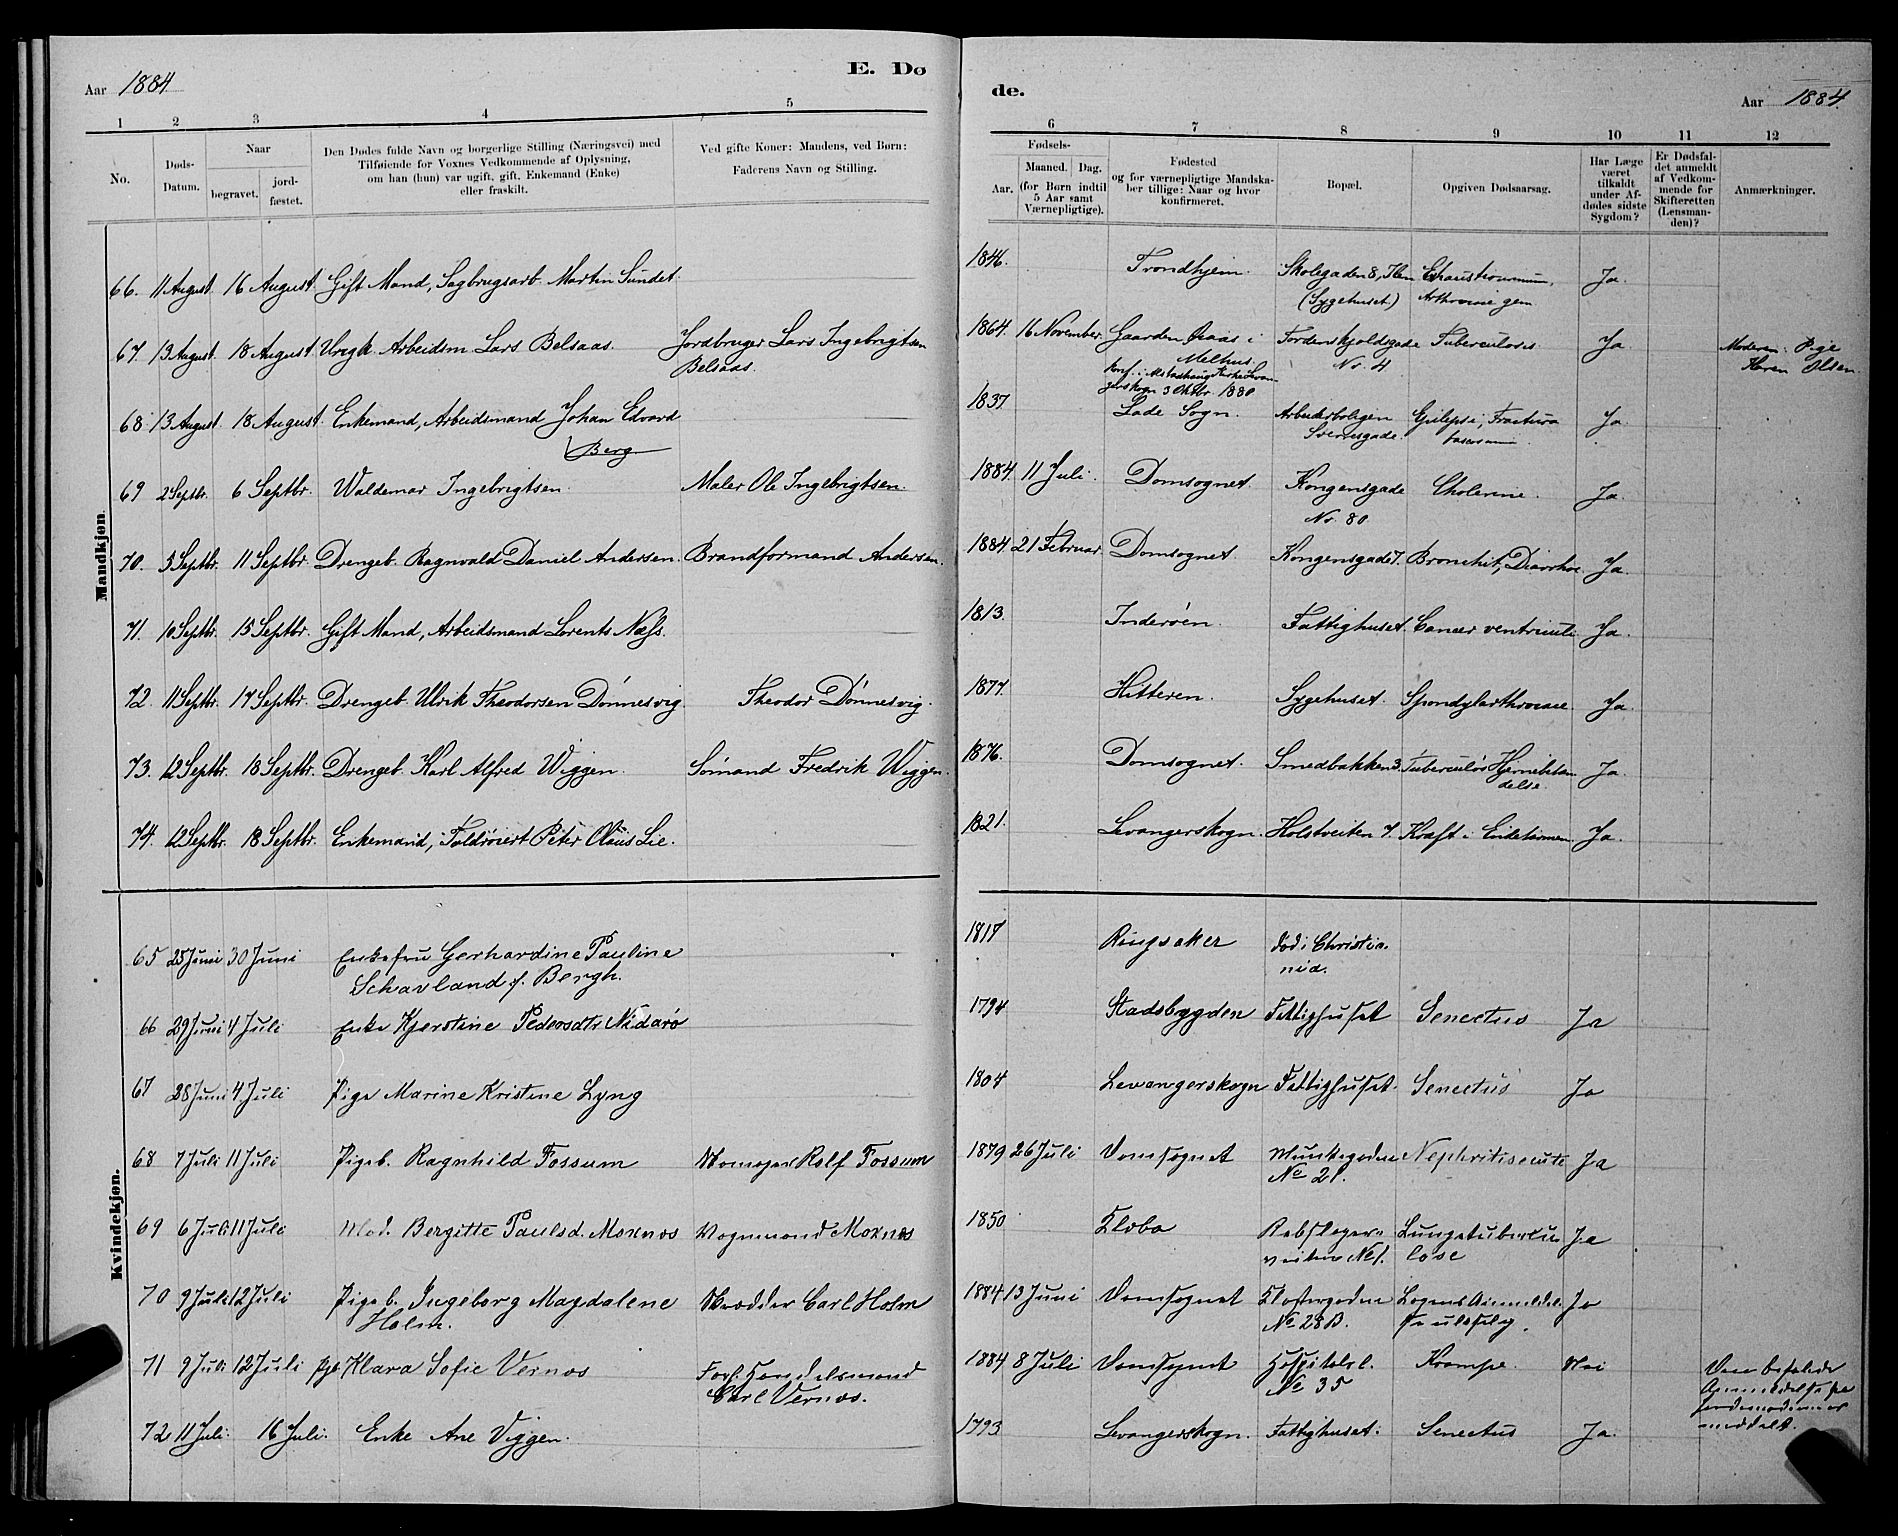 Aar 1884
E. Dø
1 2 3 4 5
No.
Døds-
Datum.
Naar
begravet.
jord-
fæstet.
Den Dødes fulde Navn og borgerlige Stilling (Næringsvei) med
Tilføiende for Voxnes Vedkommende af Oplysning,
om han (hun) var ugift, gift, Enkemand (Enke)
eller fraskilt.
Ved gifte Koner: Mandens, ved Børn:
Faderens Navn og Stilling.
Mandkjøn.
66. 11 August. 16 August. Gift Mand, Sagbrugsarb. Martin Sundet.
67. 13 August. 18 August. Ungk. Arbeidsm Lars Belsaas. Jordbruger Lars Ingebrigtsen
Belsaas.
68 13 August. 18 August. Enkemand, Arbeidsmand Johan Edvard
Berg
69 2 Septbr. 6 Septbr. Waldemar Ingebrigtsen. Maler Ole Ingebrigtsen.
70. 5 Septbr. 11 Septbr. Drengeb. Ragnvald Daniel Andersen. Brandformand Andersen.
71. 10 Septbr. 15 Septbr. Gift Mand, Arbeidsmand Lorents Næss.
72. 11 Septbr. 17 Septbr. Drengeb. Ulrik Theodorsen Dønnesvig Theodor Dønnesvig.
73. 12 Septbr. 18 Septbr. Drengeb. Karl Alfred Wiggen. Sømand Fredrik Wiggen.
74. 12 Septbr. 18 Septbr. Enkemand, Toldrorert Peter Olaus Lie.
Kvindekjøn.
65 25 Juni 30 Juni Enkefru Gerhardine Pauline
Schavland f. Bergh.
66 29 Juni 4 Juli Enke Kjerstine Pedersdtr Nidarø
67 28 Juni 4 Juli Pige Marine Kristine Lyng
68 7 Juli 11 Juli Pigeb. Ragnhild Fossum Rolf Fossum
69 6 Juli 11 Juli Mad. Bergitte Paulsd. Moxnæs Vognmand Moxnæs
70 9 Juli 12 Juli Pigeb. Ingeborg Magdalene Skrædder Carl Holm
Holm.
71 9 Juli 12 Juli Pgb Klara Sofie Vernæs Forh. Handelsmand
Carl Vernæs.
72 11 Juli. 16 Juli. Enke Ane Viggen.
de.
Aar 1884.
6 7 8 9 10 11 12
Fødsels-
Aar.
Maaned. Dag.
(for Børn indtil
5 Aar samt
Værnepligtige).
Fødested
og for værnepligtige Mandska-
ber tillige: Naar og hvor
konfirmeret.
Bopæl.
Opgiven Dødsaarsag.
Har Læge
været
tilkaldt
under Af-
dødes sidste
Sygdom?
Er Dødsfal-
det anmeldt
af Vedkom-
mende for
Skifteretten
(Lensman-
den)?
Anmærkninger.
1846. Trondhjem. Skolegaden 8, Ilen Ja.
(Sygehuset.) gem
1864. 16 November. Gaarden Aaas i Tordenskjoldsgade Tuberculosis Ja Moderen: Pige
Melhus. No. 4 Karen Olsen.
konf. i Alstadhaug Kirke Levan-
gerskogn 3 Oktbr. 1880
1837. Lade Sogn. Arbeiderboligen Epilepsi, Fractura Ja
Sverresgade.
1884. 11 Juli. Domsognet. Kongensgade Cholerine. Ja.
No. 80.
1884. 21 Februar. Domsognet. Kongensgade 7. Bronchit, Diarrhoe. Ja.
1813. Inderøen. Fattighuset. Cancer ventriculi Ja.
1877. Hitteren. Sygehuset. Spondylarthrocace Ja.
1876. Domsognet. Smedbakken 3. Tuberculøs Hjernebetæn-
delse. Ja.
1821. Levangerskogn. Holstveiten 7. Kræft i Endetarmen Ja.
1817 Ringsaker død i Christia-
nia.
1794 Stadsbygden Fattighuset Senectus Ja
1804 Levangerskogn Fattighuset Senectus Ja
1879 26 Juli Domsognet Munkegaden Nephritis acuta Ja
No 21.
1850 Elvba Rebslager- Lungetubercu- Ja
veiten No 1. lose
1884 13 Juni Domsognet Klostergaden Ja
No 28 B.
1884 8 Juli Domsognet Hospitalsl. Krampe. Nei Den befalede
No 35 Anmeldelse
meddelt.
1793 Levangerskogn. Fattighuset. Senectus Ja.